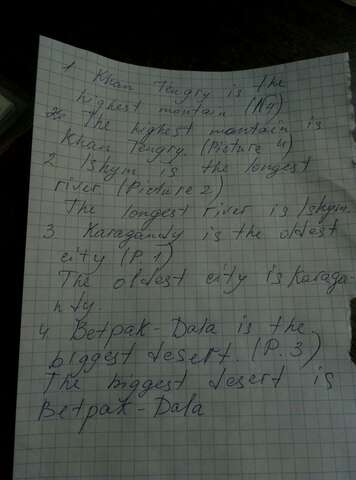 1 Khan Tengry is the
highest mantain (N4)
The highest mantain is
Khan Tengry. (Picture 4)
2. Ishym is the longest
river. (Picture 2)
The longest river is Ishym.
3. Karagandy is the oldest
city (P. 1)
The oldest city is Karaga-
ndy.
4. Betpak-Data is the
biggest desert. (P. 3)
The biggest desert is
Betpak-Data